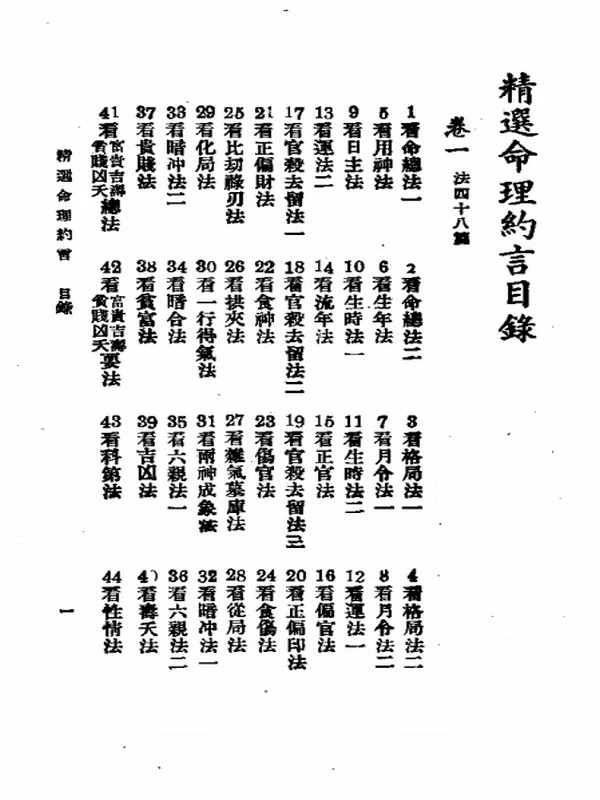 精選命理約言目錄
卷一 法四十八篇
1看命總法一
2看命總法二
3看格局法一
4看格局法二
5看用神法
6看生年法
7看月令法一
8看月令法二
9看日主法
10看生時法一
11看生時法二
12看運法一
13看運法二
14看流年法
15看正官法
16看偏官法
17看官殺去留法一
18看官殺去留法二
19看官殺去留法三
20看正偏印法
21看正偏財法
22看食神法
23看傷官法
24看食傷法
25看比刼祿刃法
26看拱夾法
27看雜氣墓庫法
28看從局法
29看化局法
30看一行得氣法
31看兩神成象法
32看暗冲法一
33看暗冲法二
34看暗合法
35看六親法一
36看六親法二
37看貴賤法
38看貧富法
39看吉凶法
40看壽夭法
41看富貴吉壽貧賤凶夭總法
42看富貴吉壽貧賤凶夭要法
43看科第法
44看性情法
精選命理約言 目錄
一